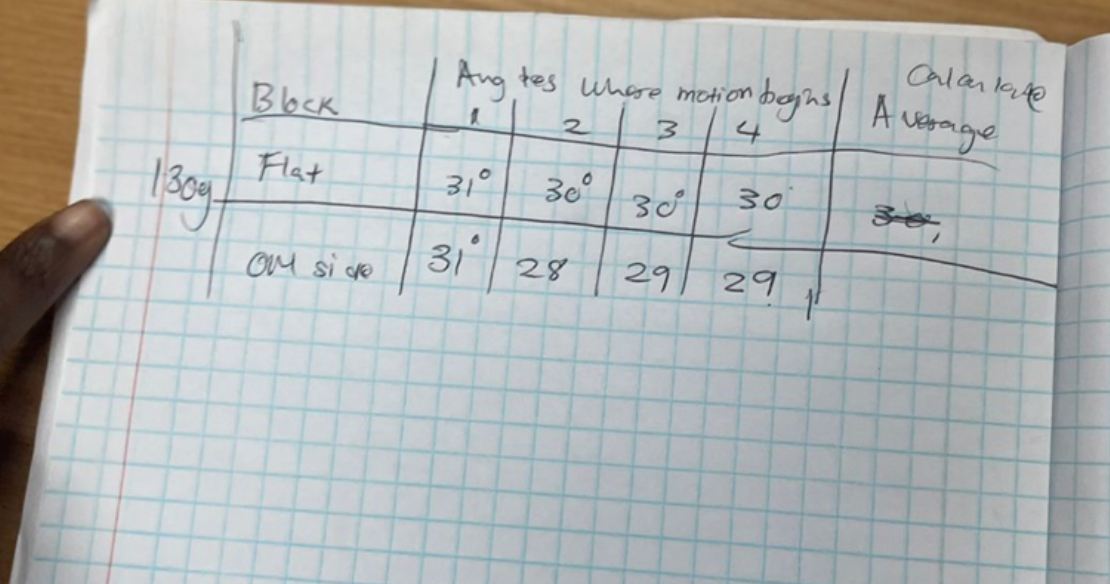 Block Angles where motion begins Calculate Average
1 2 3 4
130g Flat 31° 30° 30° 30
On side 31° 28 29 29